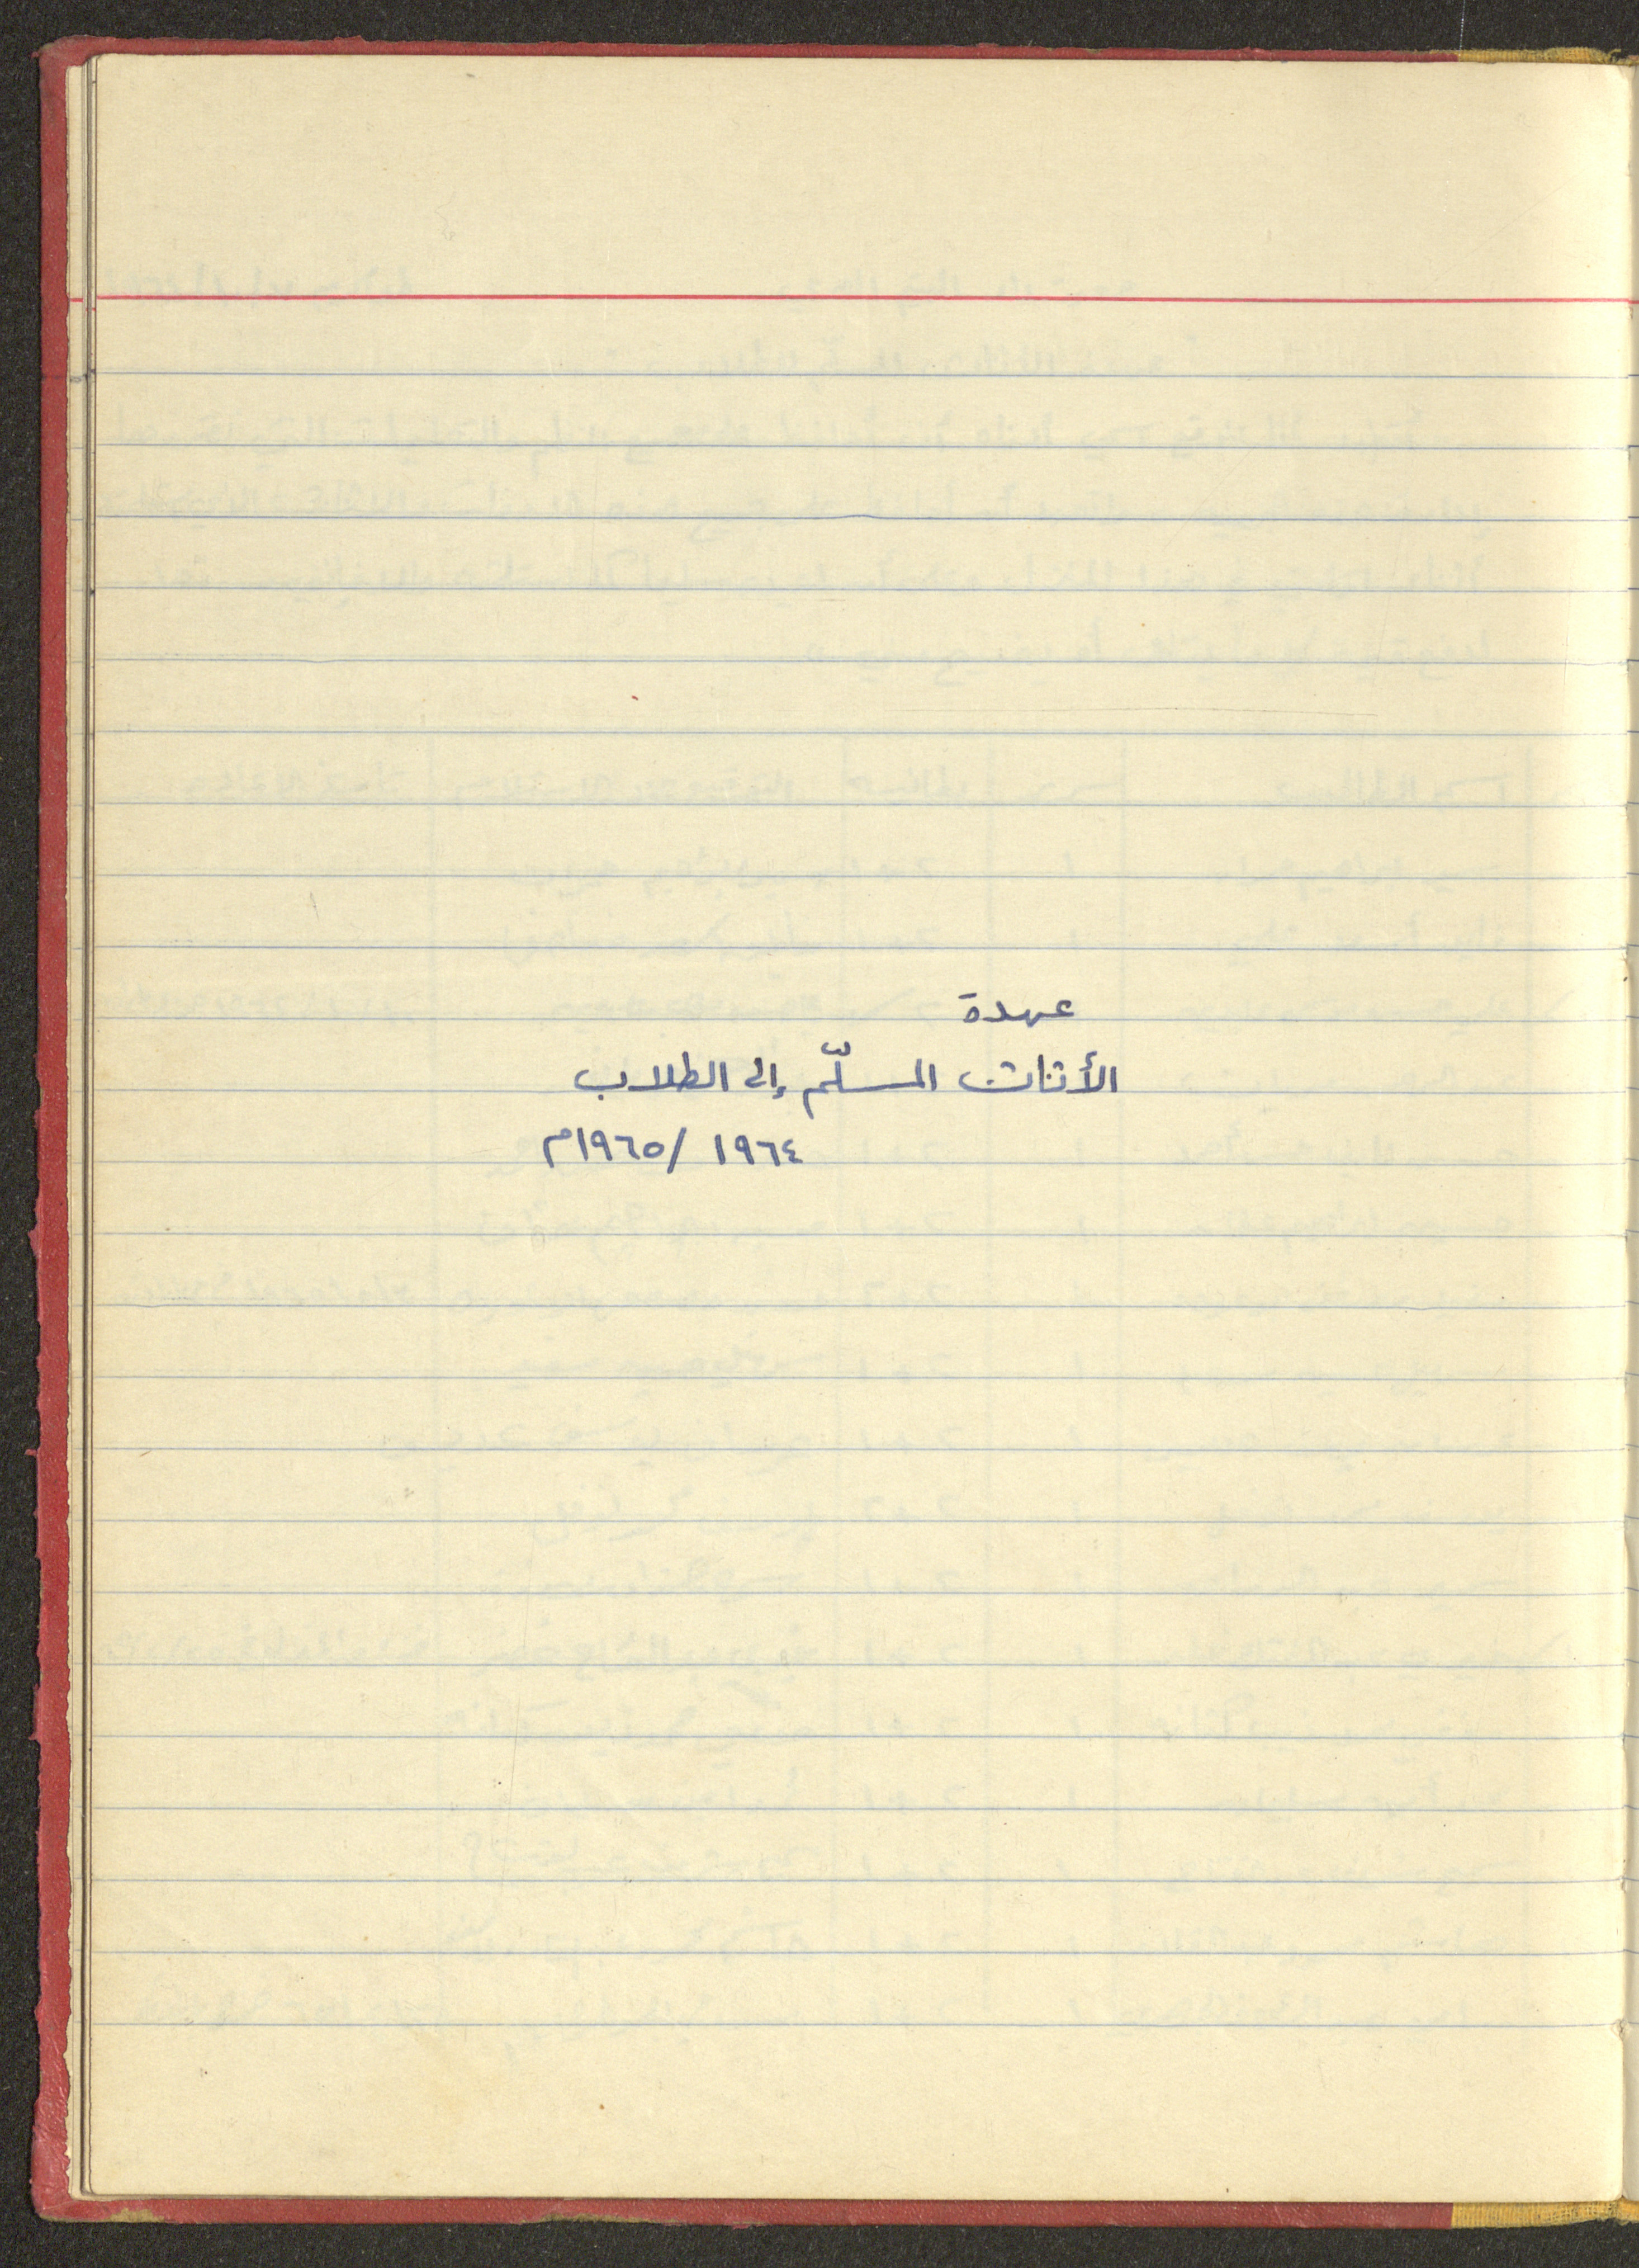 عهدة
الأثاث المسلّم إلى الطلاب
١٩٦٤ /١٩٦٥م